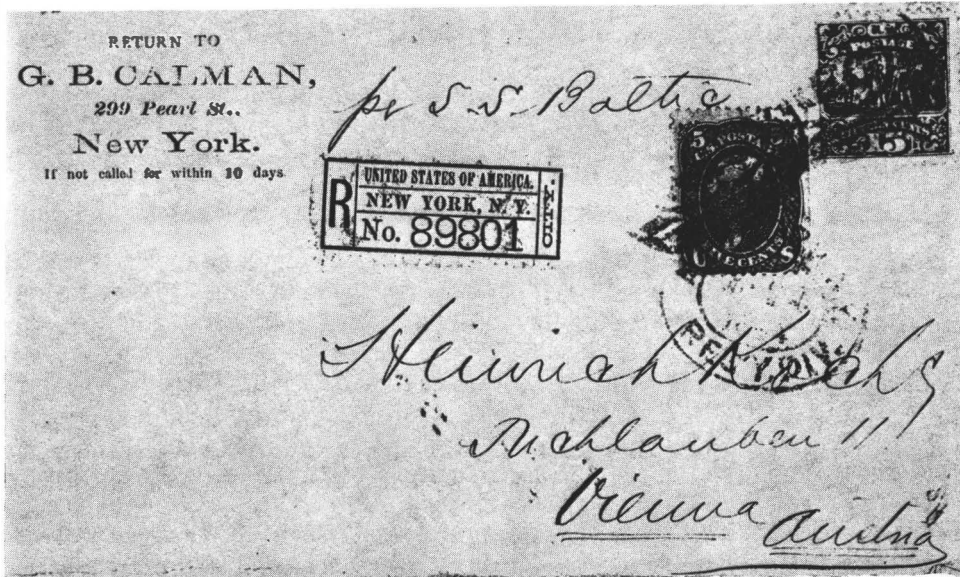 RETURN TO
G. B. CALMAN,
299 Pearl St.,
New York.
If not called for within 10 days
per S. S. Baltic
R
UNITED STATES OF AMERICA.
NEW YORK, N. Y.
No. 89801
POSTAGE
15
5
U. S.
Heinrich
Tuchlauben 11
Vienna
Austria